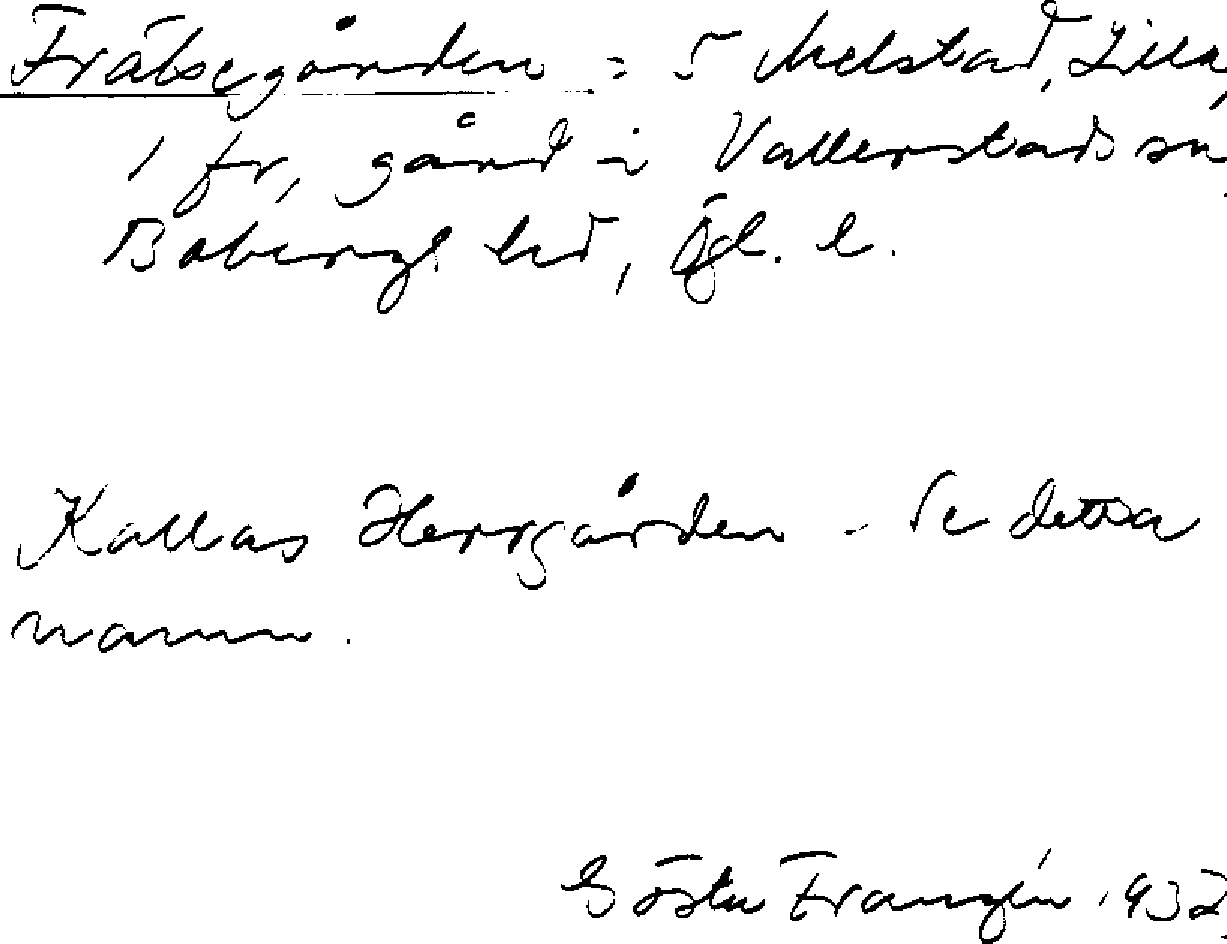 Frälsegården = 5 Melstad, Lilla,
1 fr, gård i Vallerstads sn,
Bobergs hd, Ögl. l.
Kallas Herrgården - Se detta
namn.
Gösta Franzén 1932